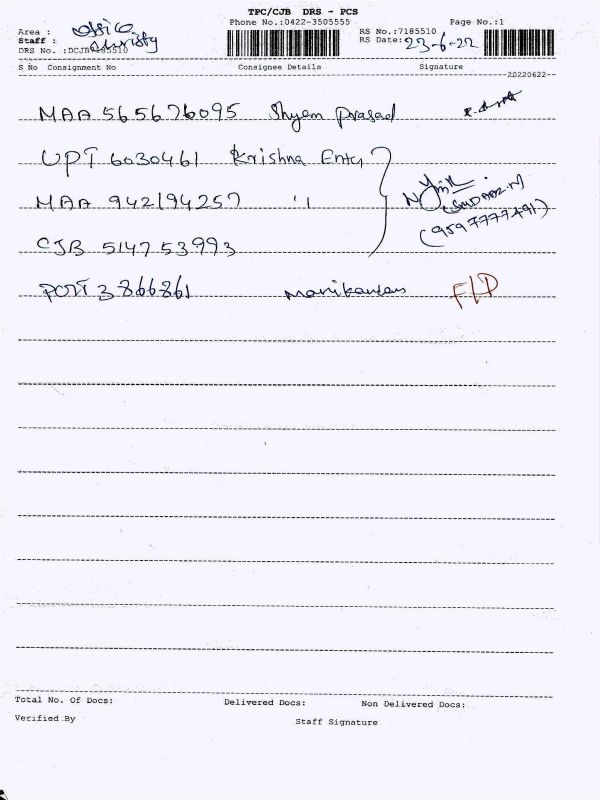 TPC/CJB DRS - PCS
Phone No.:0422-3505555 Page No.:1
Area : Office
Staff : Christy
RS No.:7185510
RS Date: 23-6-22
DRS No. :DCJB7185510
S No Consignment No Consignee Details Signature
20220622--
MAA 565676095 Shyam Prasad
UPT 6030461 Krishna Entp
MAA 942194257 '1
CJB 514753993
(9597777491)
PORT 3866861 Manikandan F/D
Total No. Of Docs: Delivered Docs: Non Delivered Docs:
Verified By Staff Signature